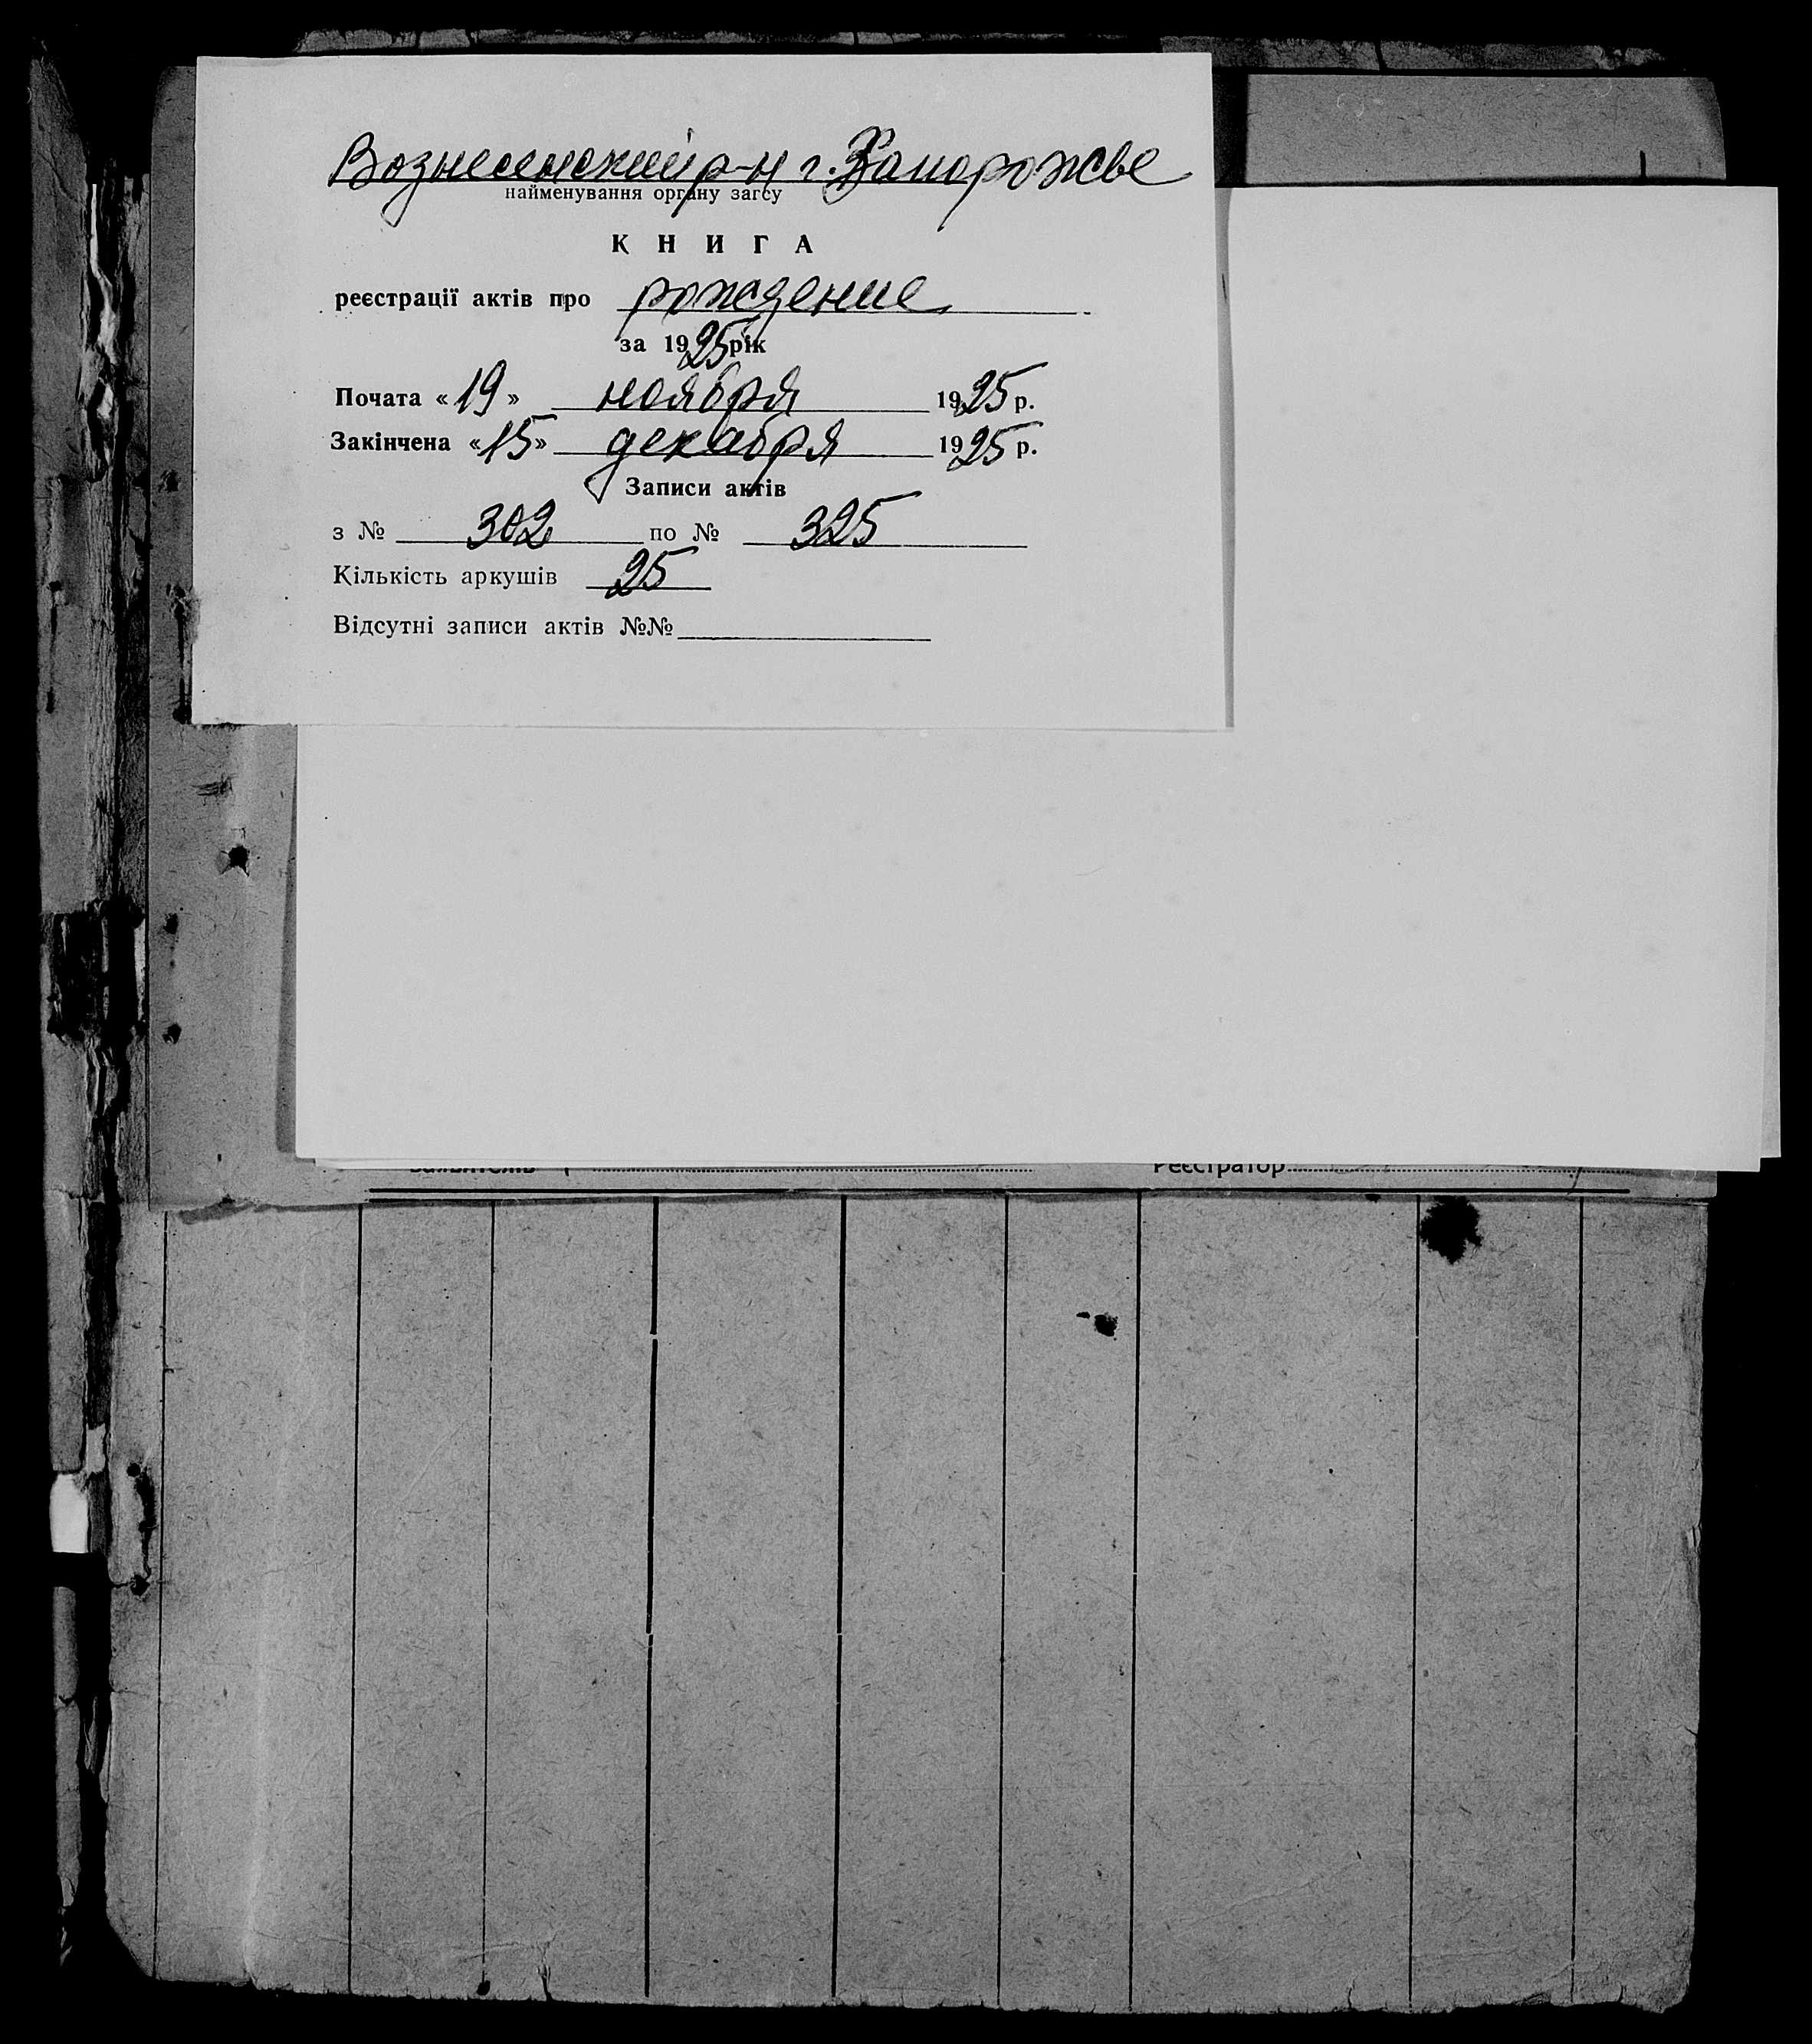 Вознесенский р-н г. Запорожье
найменування органу загсу
КНИГА
реєстрації актів про рождение
за 1925 рік
Почата «19» ноября 1925 р.
Закінчена «15» декабря 1925 р.
Записи актів
з № 302 по № 325
Кількість аркушів 25
Відсутні записи актів №№
Реєстратор